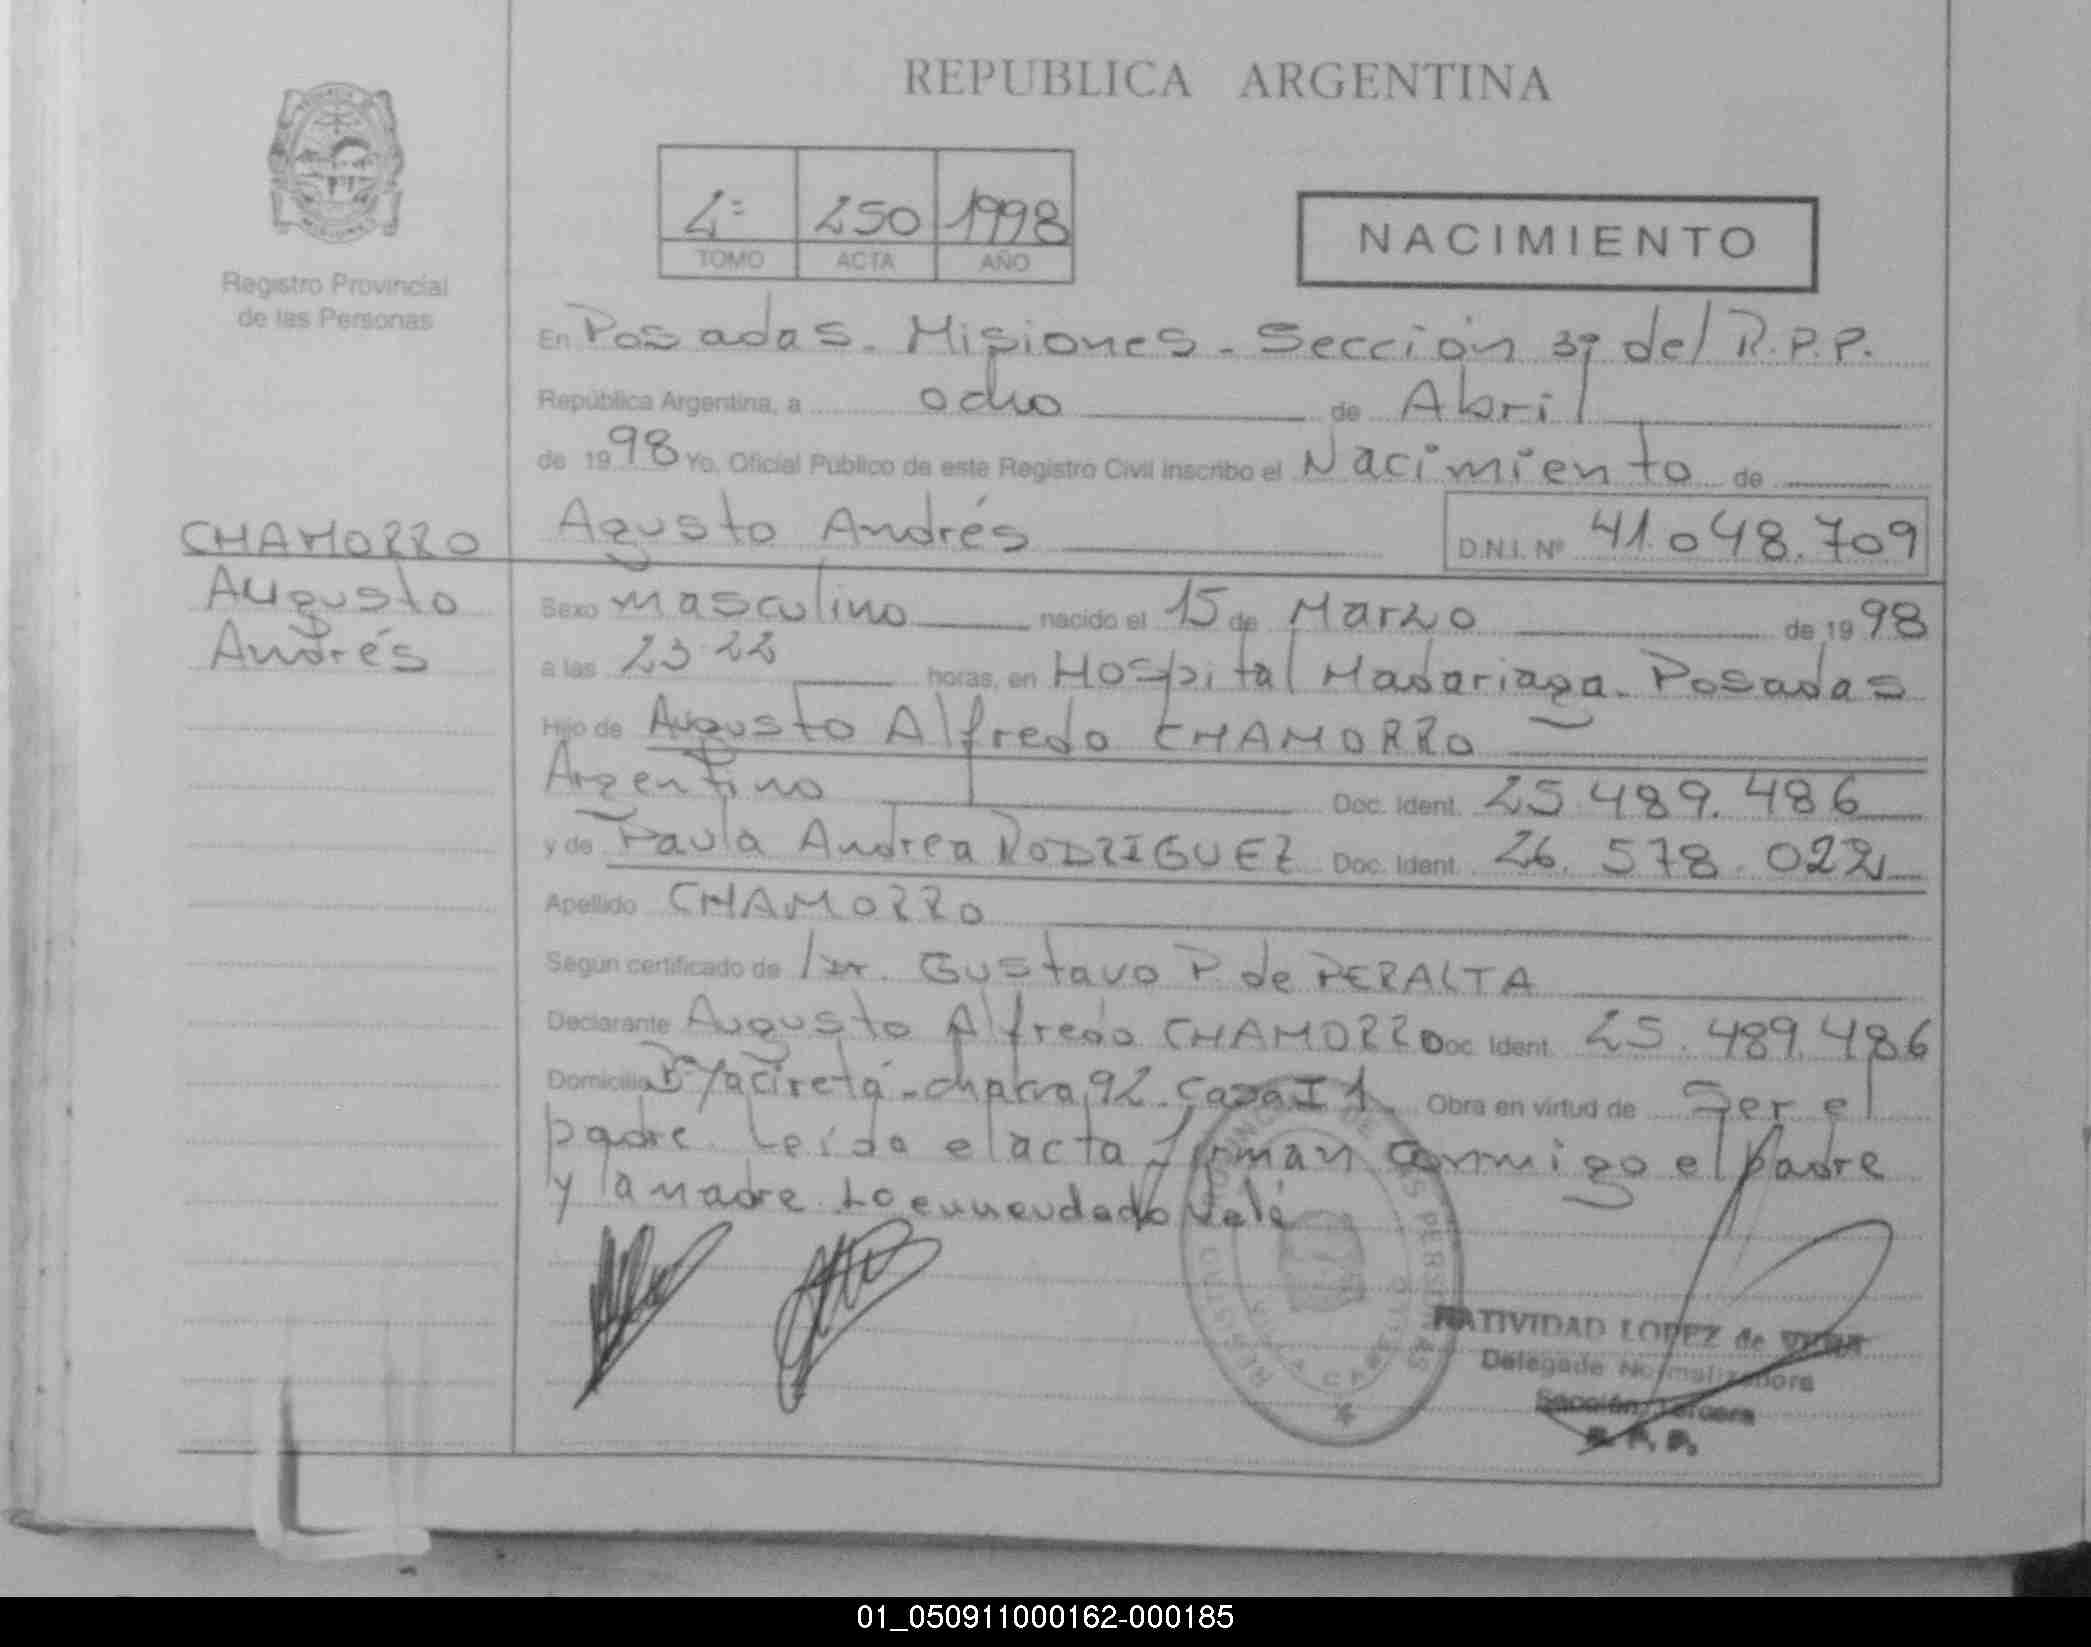 REPUBLICA ARGENTINA
2º 250 1998
TOMO ACTA AÑO
NACIMIENTO
Registro Provincial
de las Personas
En Posadas. Misiones - Sección 3ª del R.P.P.
República Argentina, a ocho de Abril
de 1998 Yo, Oficial Público de este Registro Civil inscribo el Nacimiento de
CHAMORRO
Augusto
Andrés
Agusto Andrés
D.N.I. Nº 41.048.709
Sexo masculino nacido el 15 de Marzo de 1998
a las 23 22 horas, en Hospital Madariaga. Posadas
Hijo de Augusto Alfredo CHAMORRO
Argentino Doc. Ident. 25.489.486
y de Paula Andrea RODRIGUEZ Doc. Ident. 26.578.022
Apellido CHAMORRO
Según certificado de Gustavo P. de PERALTA
Declarante Augusto Alfredo CHAMORRO Doc. Ident. 25.489.486
Domicilio Bº Yacireta - chakra 92 - Casa I 1 Obra en virtud de Ser el
padre. Leída el acta firman conmigo el padre
y la madre. Lo enmendado Vale
NATIVIDAD LOPEZ de
Delegada Normalizadora
Sección Tercera
R. P. P.
01_050911000162-000185